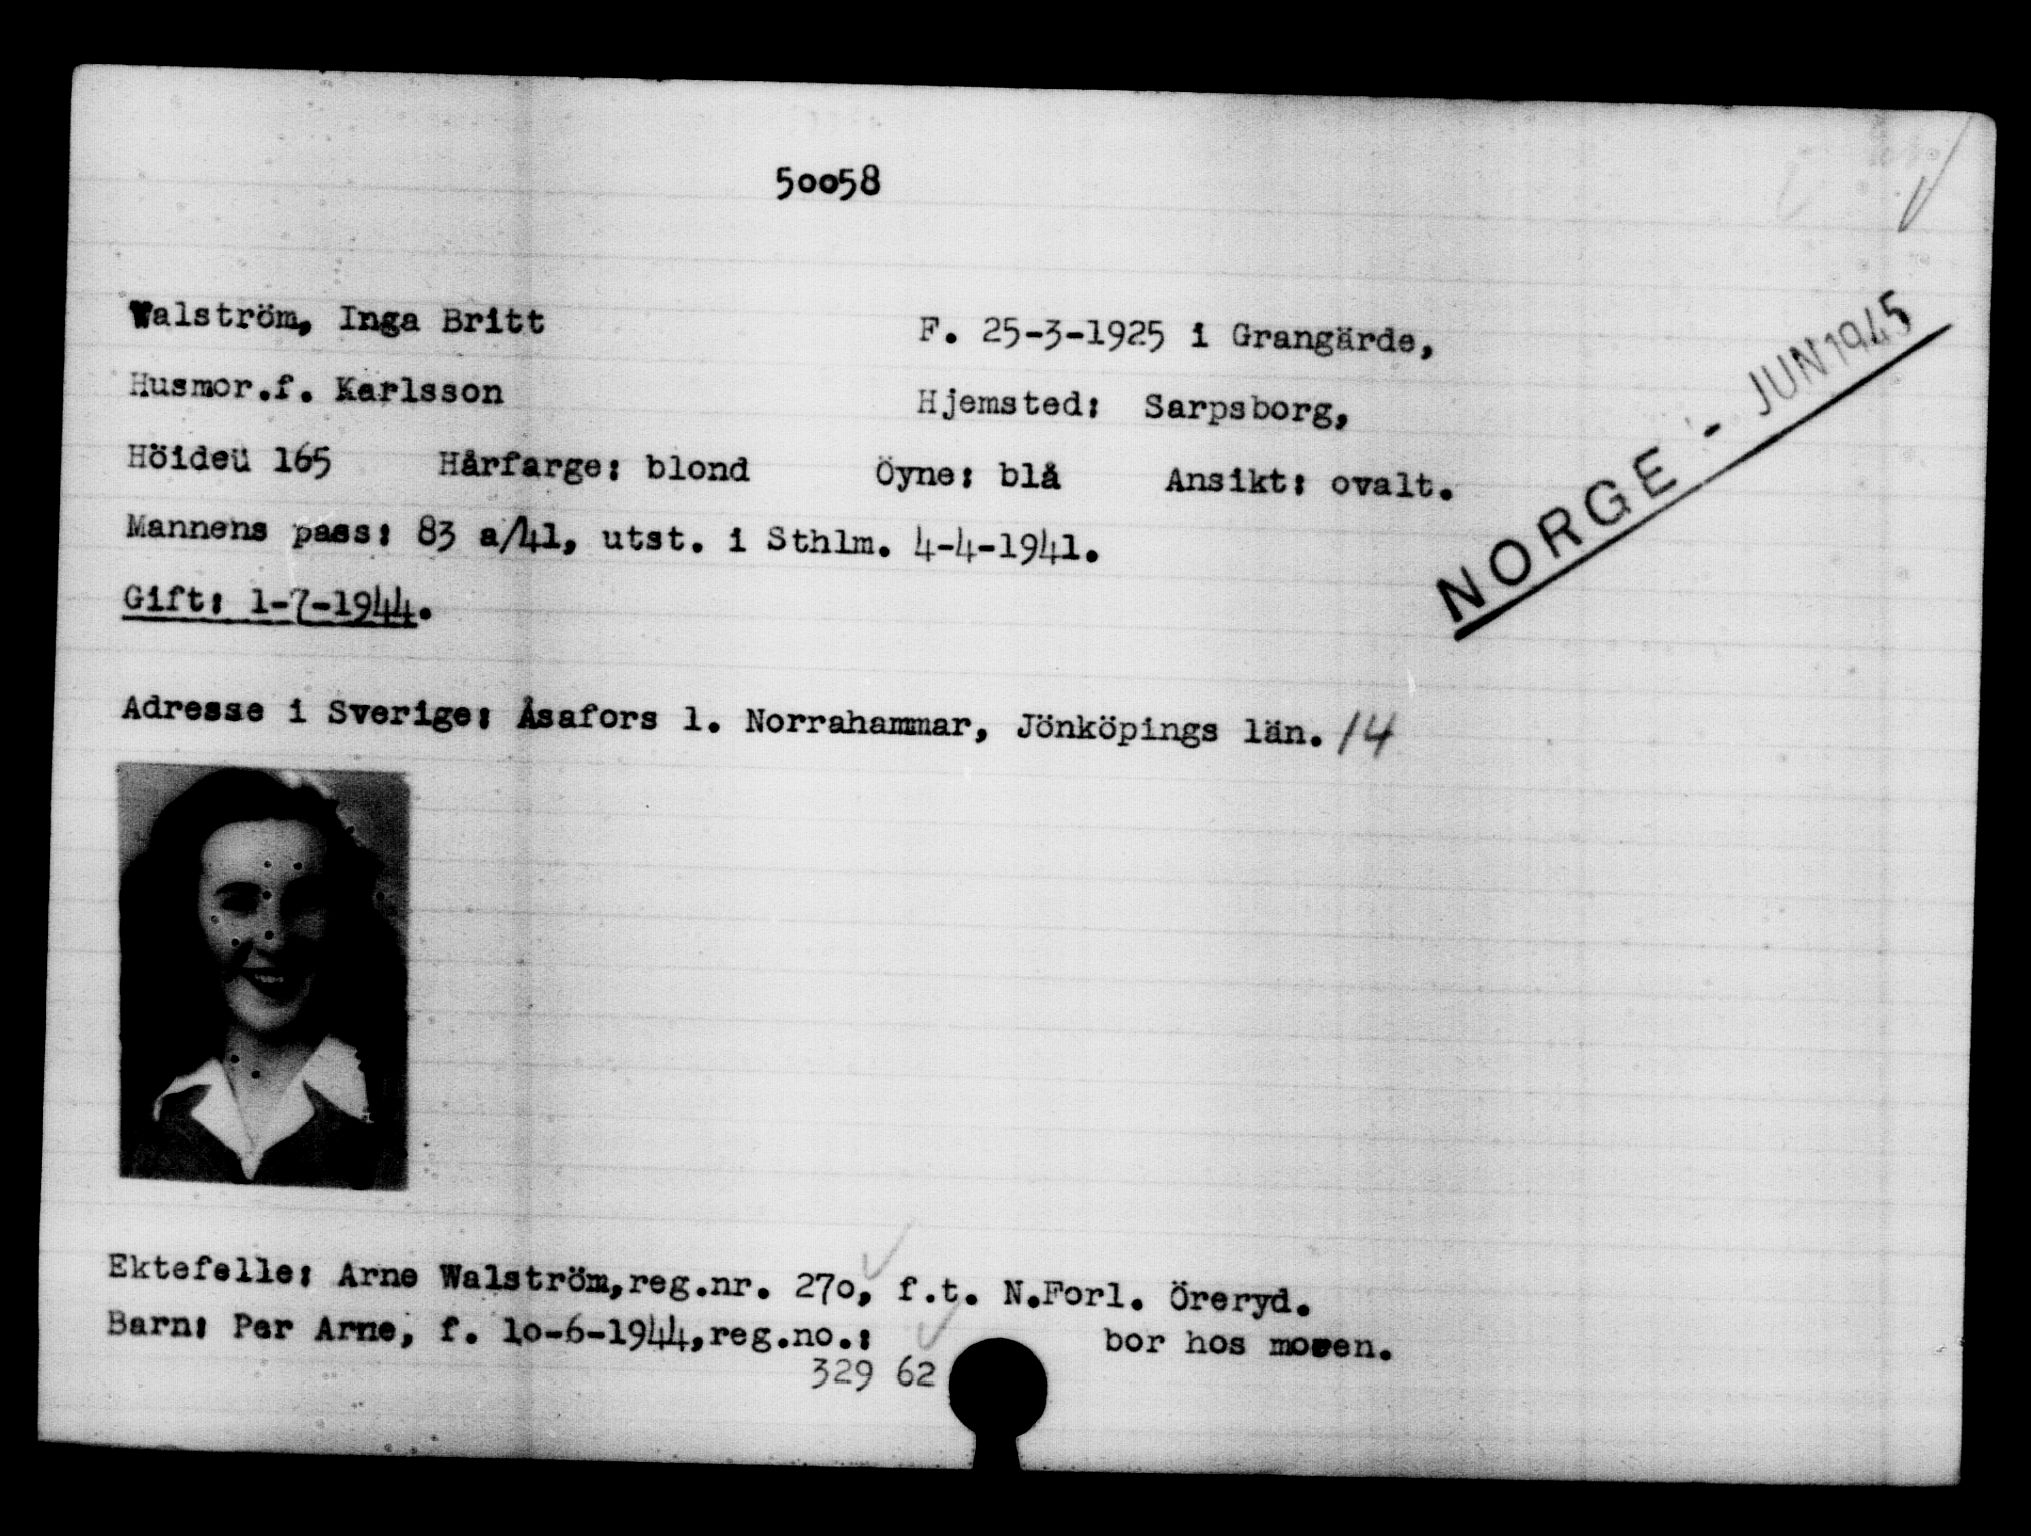 50058
Walström, Inga Britt F. 25-3-1925 i Grangärde,
Husmor.f. Karlsson Hjemsted: Sarpsborg,
Höideü 165 Hårfarge: blond Öyne: blå Ansikt: ovalt.
Mannens pass: 83 a/41, utst. i Sthlm. 4-4-1941.
Gift: 1-7-1944.
NORGE - JUN 1945
Adresse i Sverige: Åsafors 1. Norrahammar, Jönköpings län. 14
Ektefelle: Arne Walström,reg.nr. 27o, f.t. N.Forl. Öreryd.
Barn: Per Arne, f. 1o-6-1944,reg.no.: bor hos moren.
329 62